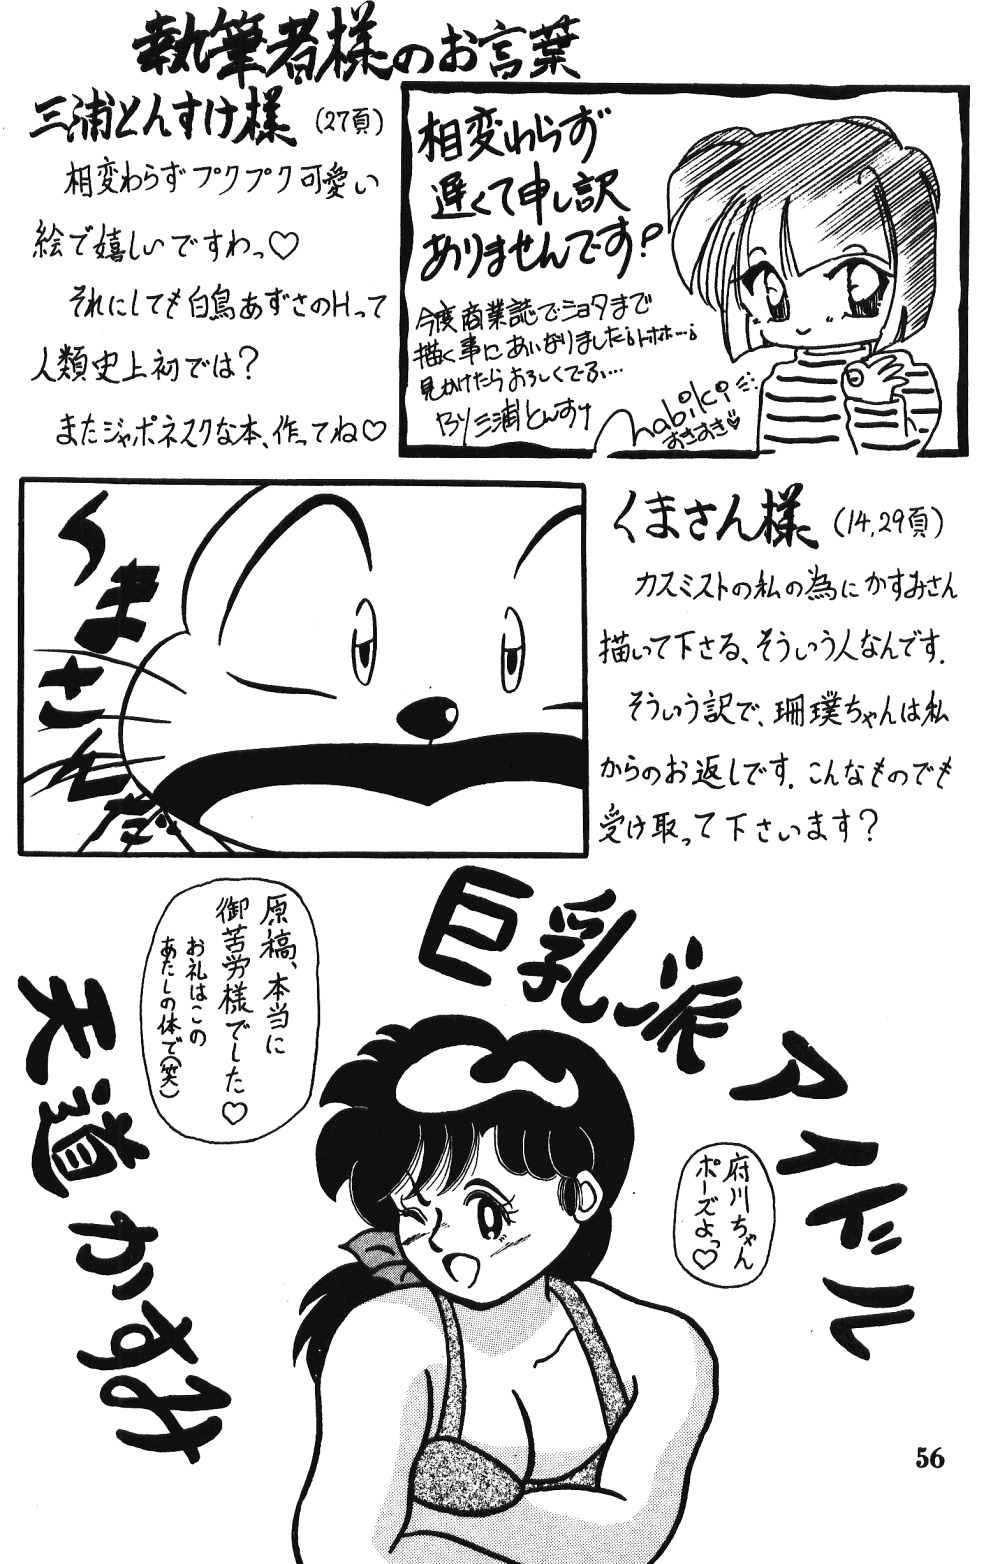 執筆者様のお言葉
三浦とんすけ様 (27頁)
相変わらずプクプク可愛い
絵で嬉しいですわっ♡
それにしても白鳥あずさのHって
人類史上初では?
またジャポネスクな本、作ってね♡
相変わらず
遅くて申し訳
ありませんです?
今度商業誌でショタまで
描く事にあいなりました。トホホ…。
見かけたらよろしくでふ…
三浦とんすけ
nabiki
すきすき♡
くまさんだ
くまさん様 (14,29頁)
カスミストの私の為にかすみさん
描いて下さる、そういう人なんです.
そういう訳で、珊璞ちゃんは私
からのお返しです. こんなものでも
受け取って下さいます?
原稿、本当に
御苦労様でした♡
お礼はこの
あたしの体で(笑)
巨乳派アイドル
天道かすみ
府川ちゃん
ポーズよっ♡
56